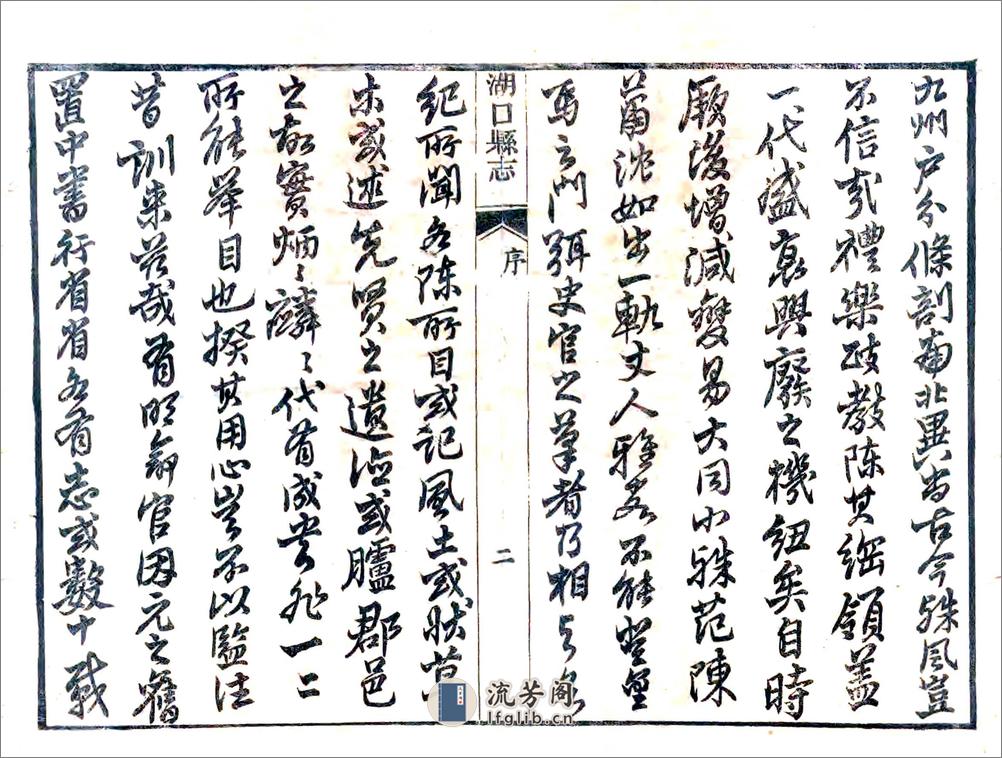 九州戶分條剖南北異尚古今殊風豈
不信哉禮樂政教陳其綱領蓋
一代盛衰興廢之機紐矣自時
厥後增減變易大同小殊范陳
蕭沈如出一軌文人雅士不能登
馬之門弭史官之筆者乃相與
湖口縣志
序
二
紀所聞各陳所目或記風土或狀草
木或述先賢之遺迹或臚郡邑
之故實炳炳麟麟代有成書非一二
所能舉目也揆其用心豈不以監往
昔訓來茲哉有明命官因元之舊
置中書行省省各有志或數十載
流芳阁
lfglib.cn